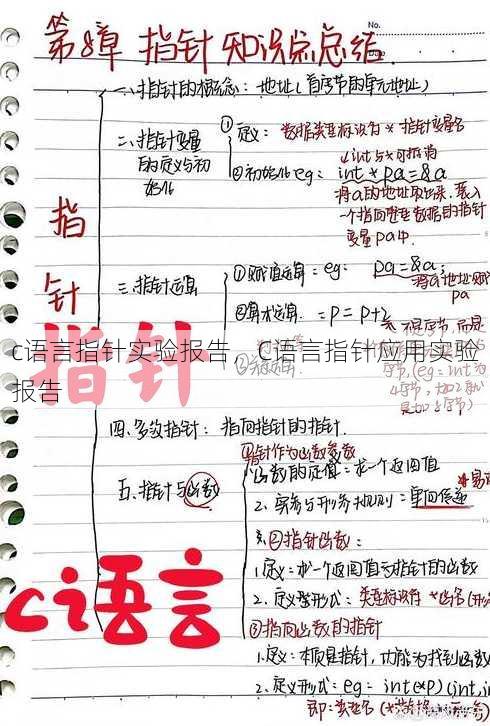 No.
Date
第8章 指针 知识点总结.
一、指针的概念：地址(首字节的单元地址)
二、指针变量的定义与初始化
①定义：数据类型标识符 * 指针变量名
int与*可抵消
②初始化 eg： int *pa=&a
将a的地址取出来，装入
一个指向整型数据的指针
变量pa中.
指针
三、指针运算
①赋值运算：eg： pa=&a;
将a地址赋给
pa
②算术运算：p=p+2
不是字节，而是
字节，(eg：int为
4字节，加2就
是加8字节)
指针
c语言指针实验报告，C语言指针应用实验
报告
四、多级指针：指向指针的指针.
五、指针与函数
①指针作为函数参数
1、函数的返值：找一个返回值
2、实参与形参规则：单向传递
②指针函数：
1、定义：找一个返回值为指针的函数
2、定义形式：类型标识符 *函数名(形
③指向函数的指针
1、定义：本质是指针，功能为找到函数
2、定义形式：eg：int(*p)(int,in
即：类型名(*指针名)
c语言